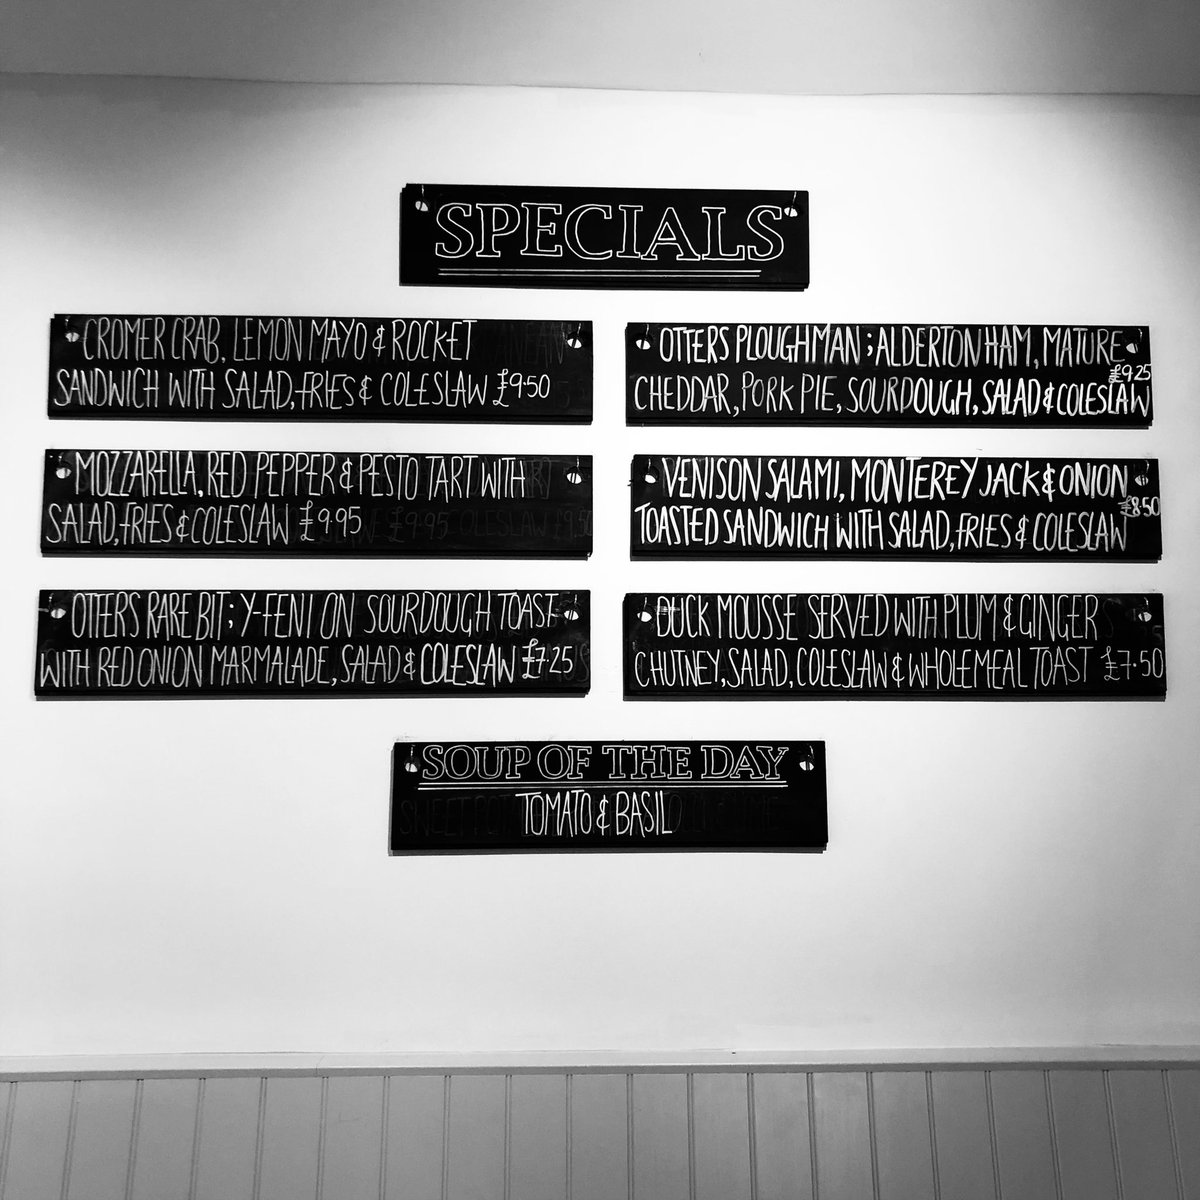 SPECIALS
CROMER CRAB, LEMON MAYO & ROCKET
SANDWICH WITH SALAD, FRIES & COLESLAW £9.50
OTTERS PLOUGHMAN; ALDERTON HAM, MATURE
CHEDDAR, PORK PIE, SOURDOUGH, SALAD & COLESLAW £9.25
MOZZARELLA, RED PEPPER & PESTO TART WITH
SALAD, FRIES & COLESLAW £9.95
VENISON SALAMI, MONTEREY JACK & ONION
TOASTED SANDWICH WITH SALAD, FRIES & COLESLAW £8.50
OTTERS RAREBIT; Y-FENI ON SOURDOUGH TOAST
WITH RED ONION MARMALADE, SALAD & COLESLAW £7.25
DUCK MOUSSE SERVED WITH PLUM & GINGER
CHUTNEY, SALAD, COLESLAW & WHOLEMEAL TOAST £7.50
SOUP OF THE DAY
TOMATO & BASIL